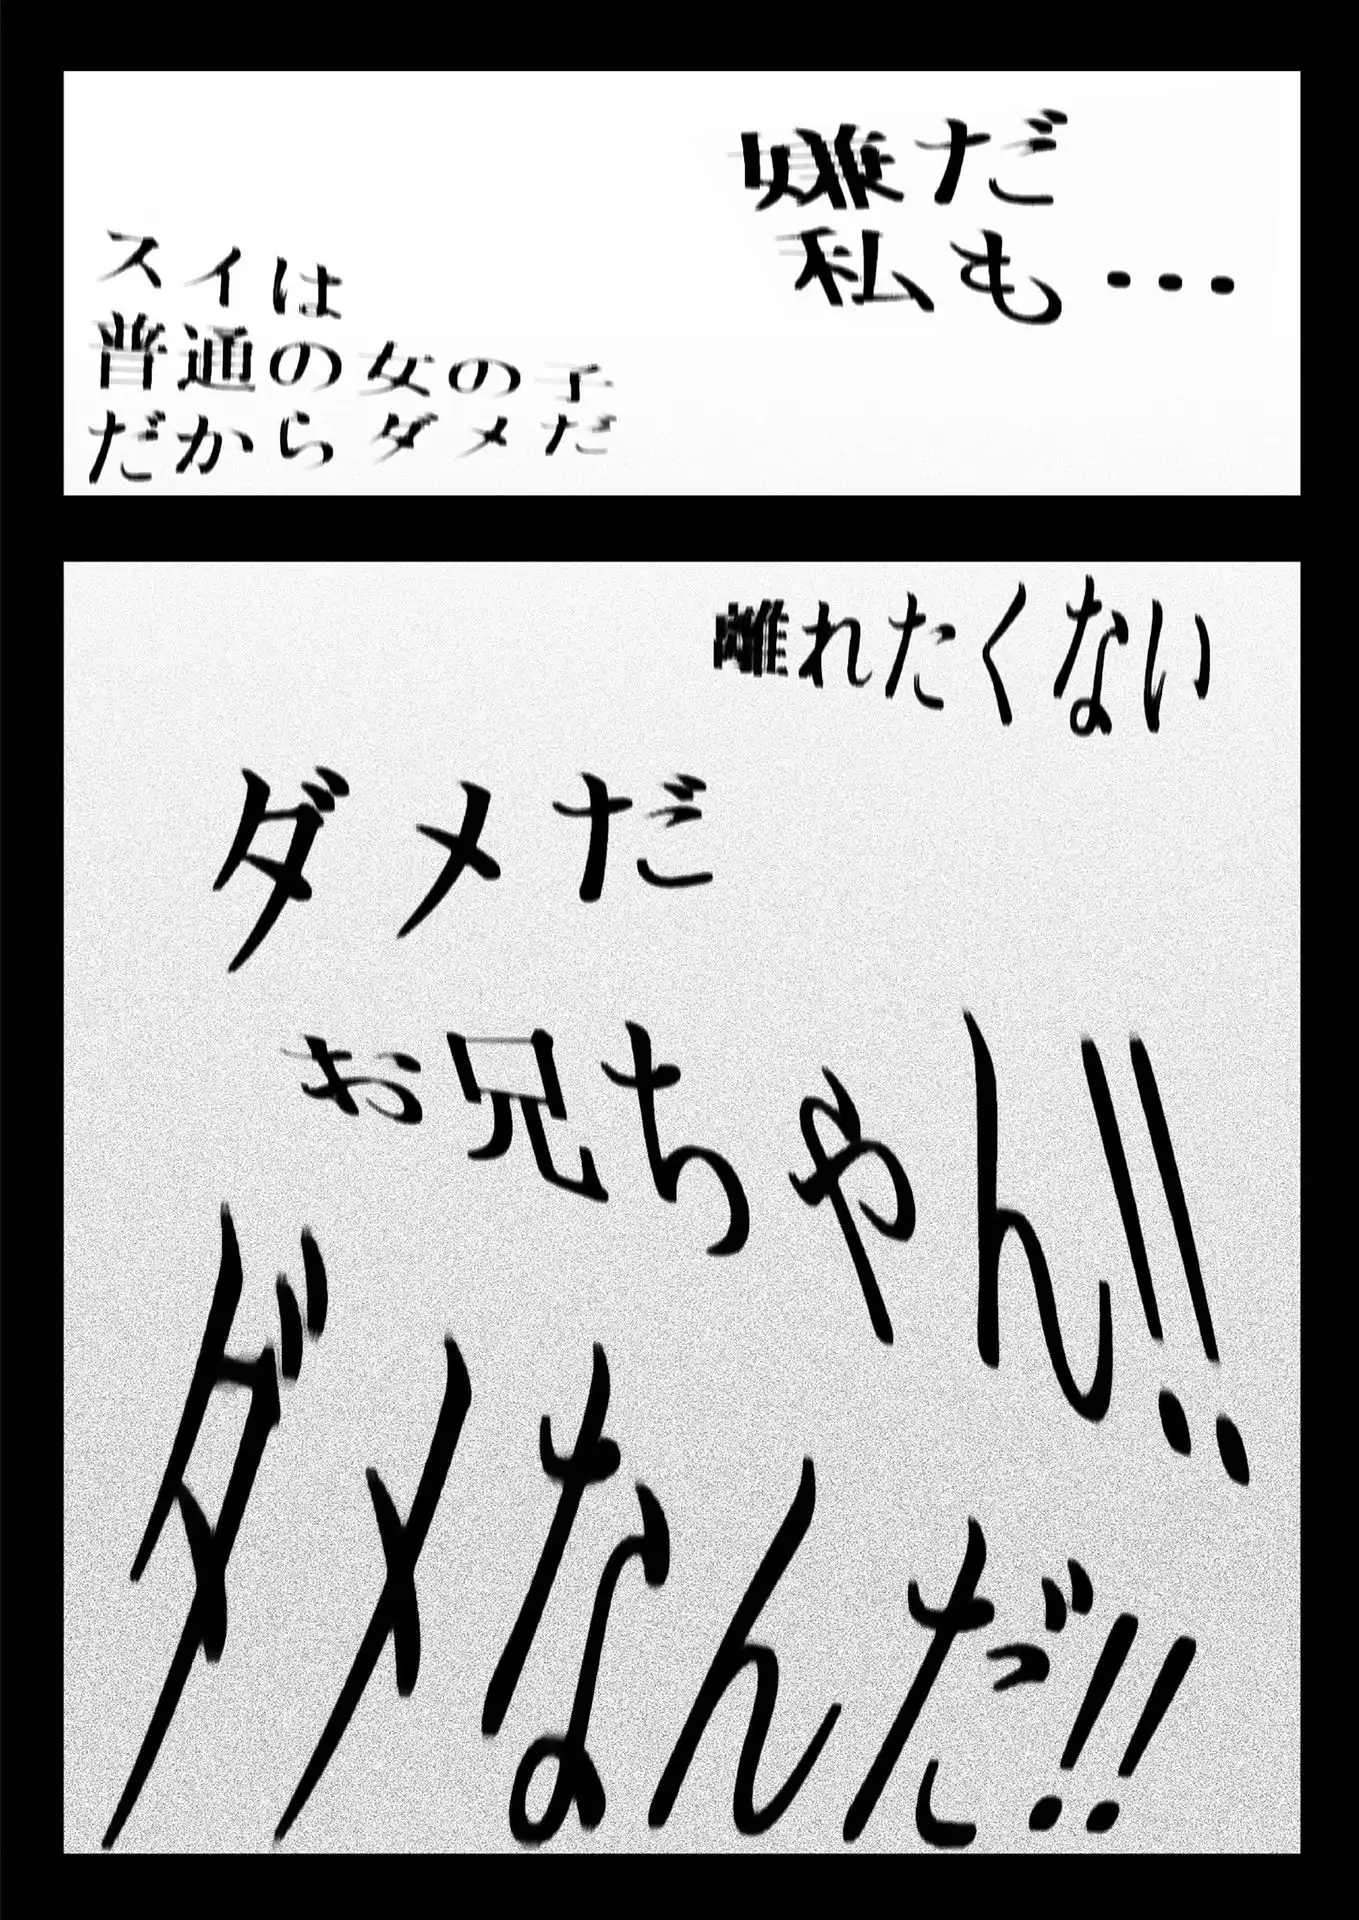 嫌だ
私も・・・
スイは
普通の女の子
だからダメだ
離れたくない
ダメだ
お兄ちゃん!!
ダメなんだ!!